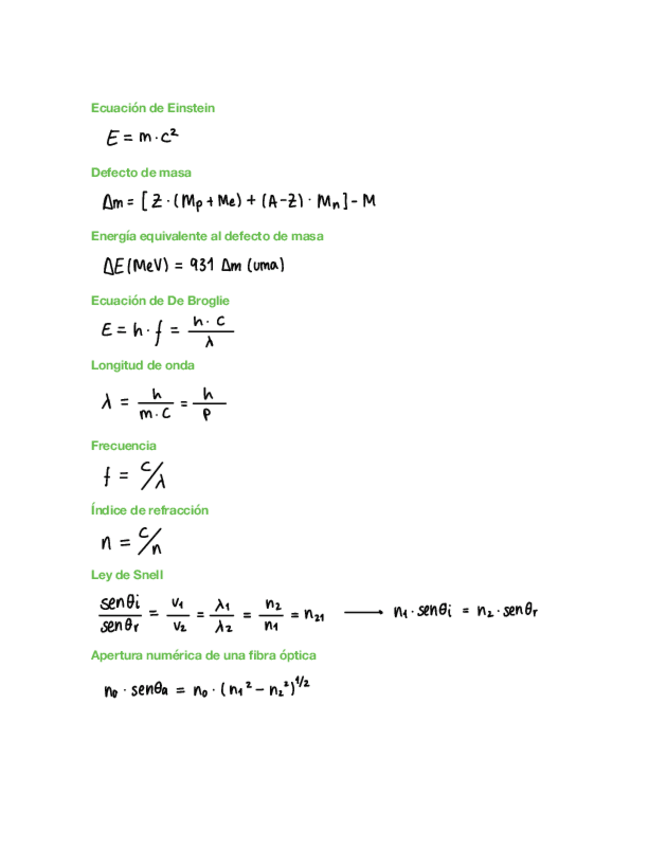 Ecuación de Einstein
E = m·c²
Defecto de masa
Δm = [Z·(Mp + Me) + (A-Z)· Mn] - M
Energía equivalente al defecto de masa
ΔE(MeV) = 931 Δm (uma)
Ecuación de De Broglie
E = h·f = h·c / λ
Longitud de onda
λ = h / m·c = h / p
Frecuencia
f = c/λ
Índice de refracción
n = c/n
Ley de Snell
senθi / senθr = v1 / v2 = λ1 / λ2 = n2 / n1 = n21 ⟶ n1·senθi = n2·senθr
Apertura numérica de una fibra óptica
n0 · senθa = n0 · (n1² - n2²)^1/2